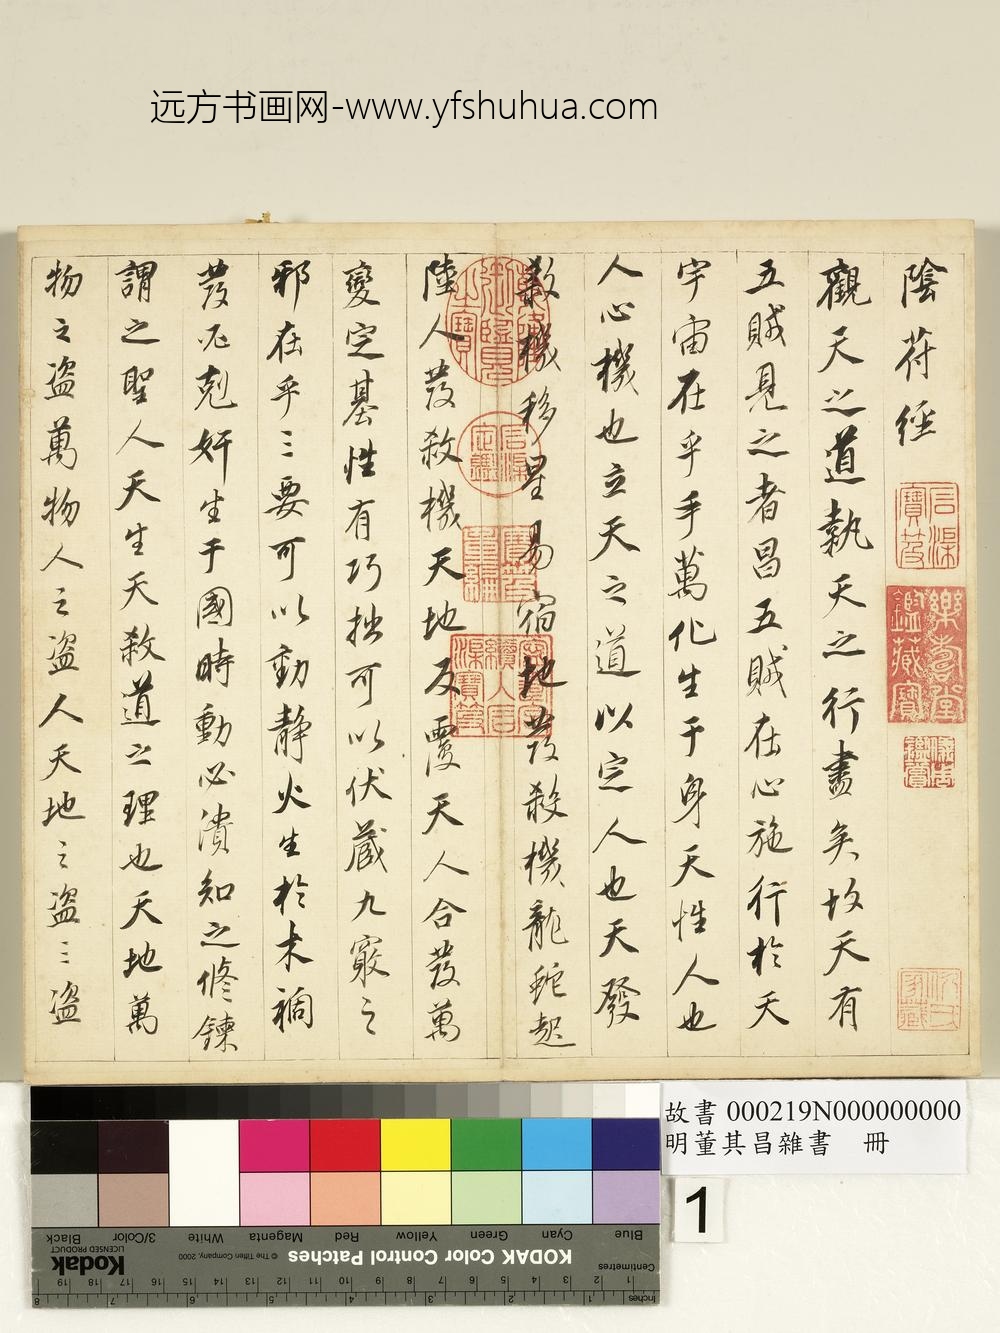 远方书画网-www.yfshuhua.com
陰符經
觀天之道執天之行盡矣故天有
五賊見之者昌五賊在心施行於天
宇宙在乎手萬化生于身天性人也
人心機也立天之道以定人也天發
殺機移星易宿地發殺機龍蛇起
陸人發殺機天地反覆天人合發萬
變定基性有巧拙可以伏藏九竅之
邪在乎三要可以動靜火生於木禍
發必剋奸生于國時動必潰知之修鍊
謂之聖人天生天殺道之理也天地萬
物之盜萬物人之盜人天地之盜三盜
樂壽堂鑑藏寶
故書 000219N000000000
明董其昌雜書 冊
1
Blue
Cyan
Green
Yellow
Red
Magenta
White
3/Color
Black
KODAK Color Control Patches
© The Tiffen Company, 2000
Kodak
LICENSED PRODUCT
Centimetres
Inches